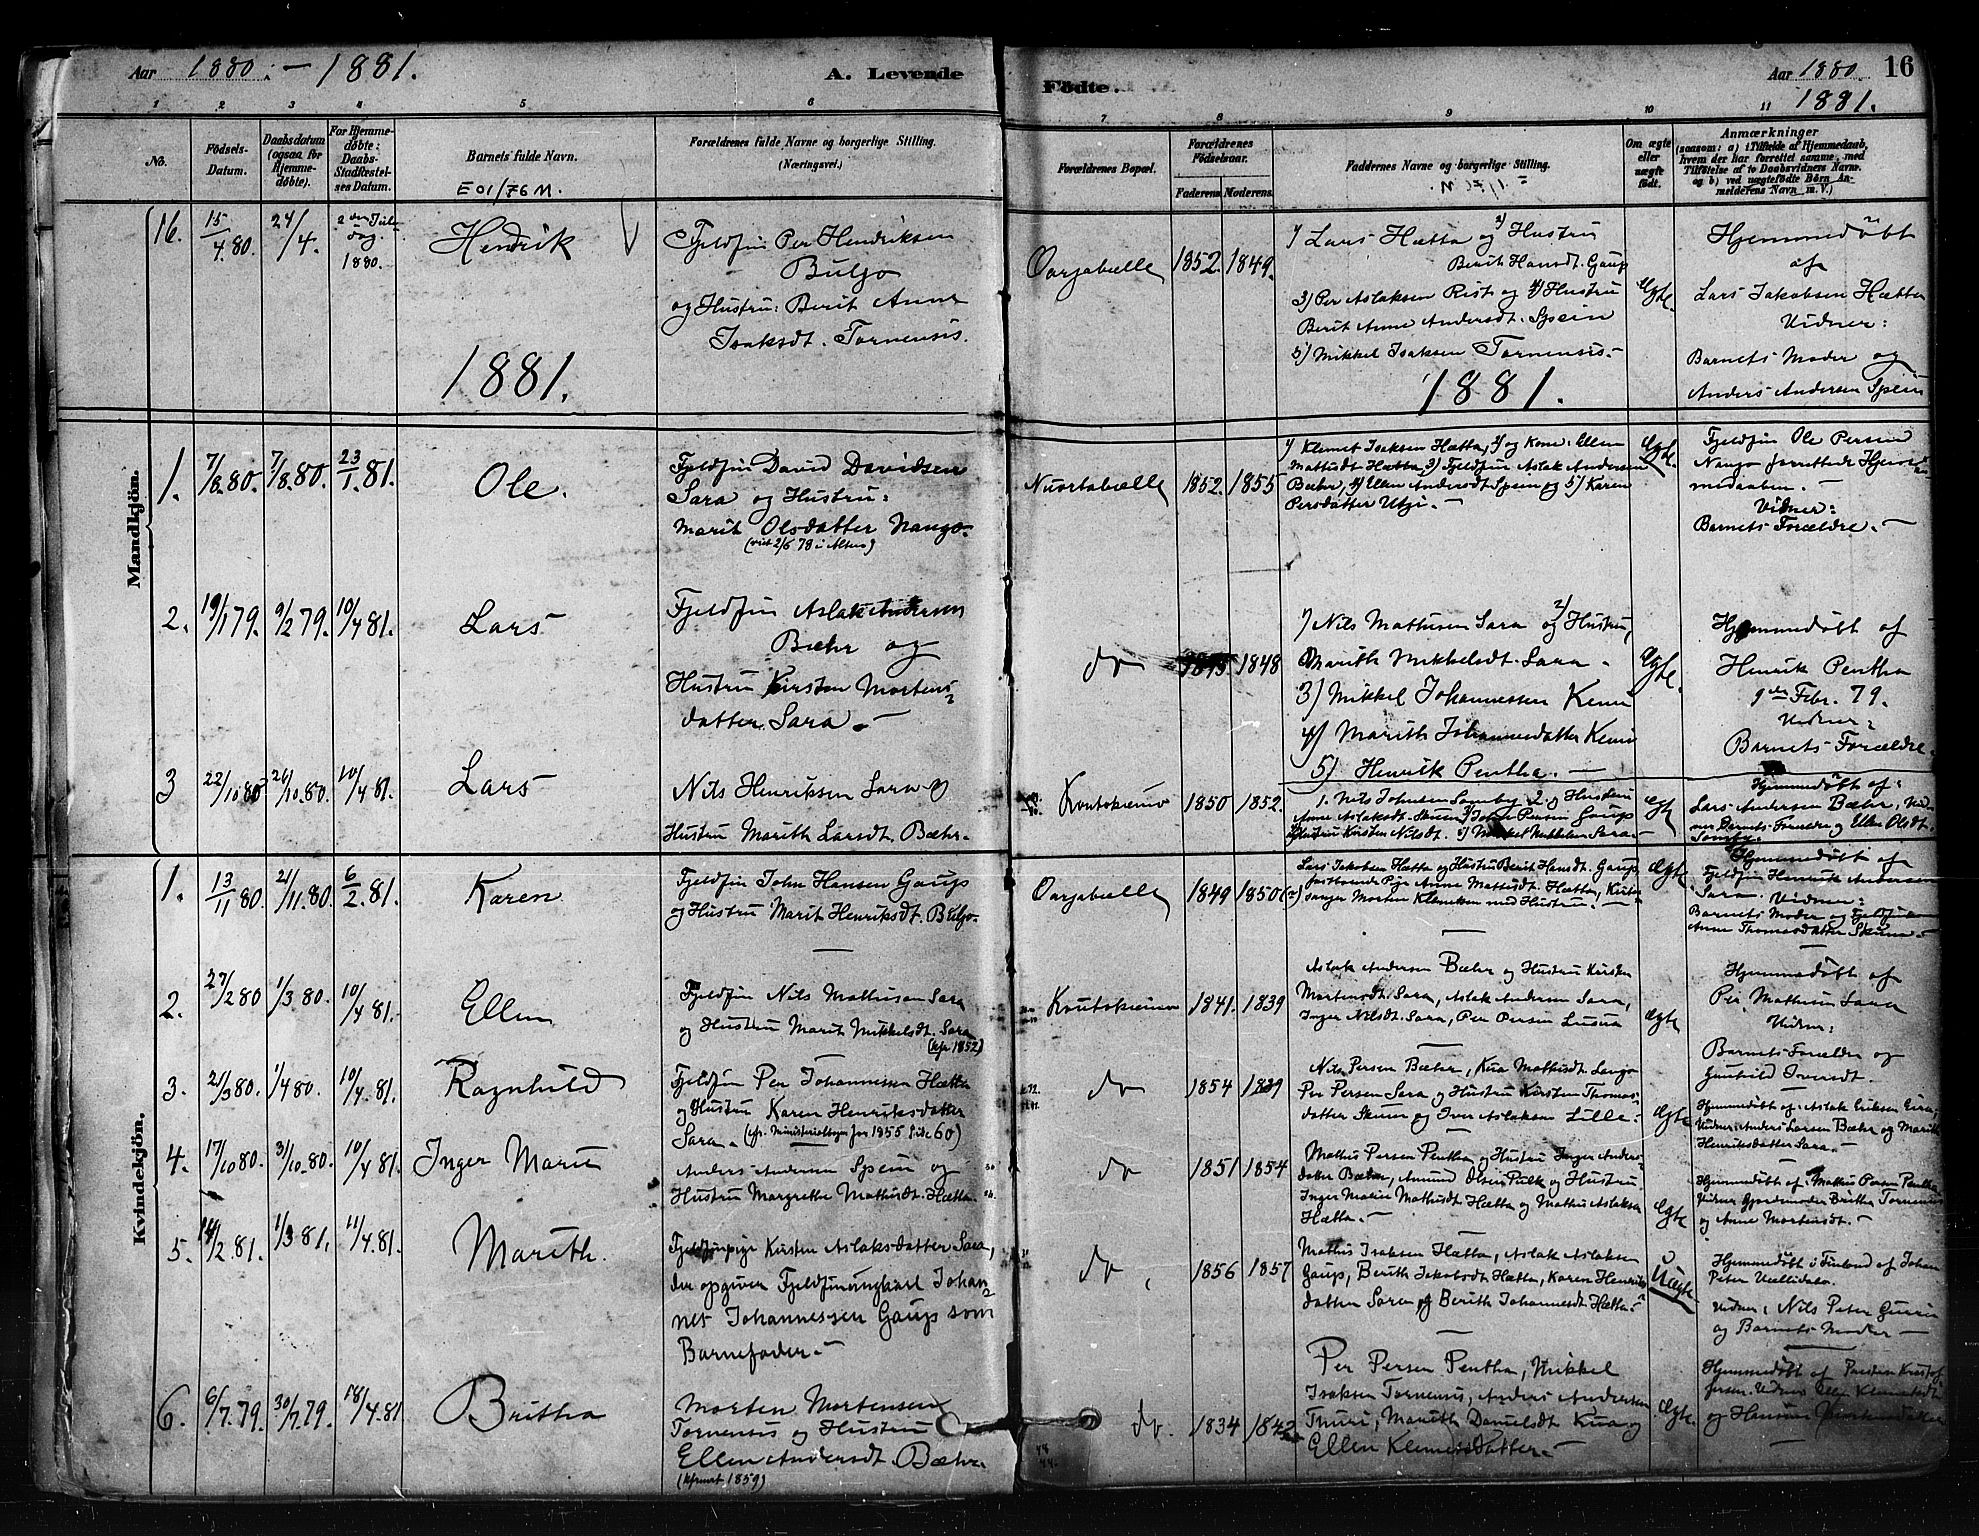 Aar 1880. – 1881.
A. Levende
Fødte.
Aar 1880. 16
1881.
1 2 3 4 5 6 7 8 9 10 11
No.
Fødsels-
Datum.
Daabsdatum
(ogsaa for
Hjemme-
døbte).
For Hjemme-
døbte:
Daabs-
Stadfæstel-
ses Datum.
Barnets fulde Navn.
E01/76 M.
Forældrenes fulde Navne og borgerlige Stilling.
(Næringsvei.)
Forældrenes Bopæl.
Forældrenes
Fødselsaar.
Faderens. Moderens.
Faddernes Navne og borgerlige Stilling.
Om ægte
eller
uægte
født.
Anmærkninger
(saasom: a) i Tilfælde af Hjemmedaab,
hvem der har forrettet samme, med
Tilføielse af to Daabsvidners Navne.
og b) ved uægtefødte Børn An-
melderens Navn m. V.)
Mandkjön.
16. 15/4 80. 24/4. 2den Jul-
dag.
1880.
Hendrik
Fjeldfin Per Hendriksen
Buljo
og Hustru: Berit Anne
Isaksdt. Tornensis.
Oarjabælle 1852. 1849.
1) Lars Hætta og 2) Hustru
Berit Hansdt. Gaup
3) Per Aslaksen Rist og 4) Hustru
Berit Anne Andersdt. Spein
5) Mikkel Isaksen Tornensis.–
Ægte.
Hjemmedøbt
af
Lars Jakobsen Hætta
Vidner:
Barnets Moder og
Anders Andersen Spein
1881.
1881.
1. 7/8. 80. 7/8. 80. 23/1. 81.
Ole.
Fjeldfin David Davidsen
Sara og Hustru:
Marit Olsdatter Nango.
(viet 2/6 78 i Alten)
Nuortabælle 1852. 1855
1) Klemet Isaksen Hætta, 2) og Kone: Ellen
Mathisdt Hætta, 3) Fjeldfin Aslak Andersen
Bæhr, 4) Ellen Andersdt Spein og 5) Karen
Persdatter Utsi.–
Ægte.
Fjeldfin Ole Persen
Nango forrettede Hjem-
medaaben.–
Vidner:
Barnets Forældre.–
2. 19/1 79. 9/2 79. 10/4 81.
Lars
Fjeldfin Aslak Andersen
Bæhr og
Hustru Kirsten Mortens-
datter Sara.–
do 1848
1) Nils Mathisen Sara 2) og Hustru,
Marith Mikkelsdt. Sara.
3) Mikkel Johannessen Kemi
4) Marith Johannesdatter Kemi
5) Henrik Pentha.–
Ægte.
Hjemmedøbt af
Henrik Pentha
9de Febr. 79.
Vidner:
Barnets Forældre.
3 22/10 80 26/10. 80. 10/4 81.
Lars
Nils Henriksen Sara og
Hustru Marith Larsdt. Bæhr.
Koutokeino 1850 1852.
1. Nils Johnsen Somby 2. og Hustru
Anne Aslaksdt. Skum 3) John Persen Gaup
Hustru Kirsten Nilsdt. 5) Mikkel Mikkelsen Sara
Ægte
Hjemmedøbt af:
Lars Andersen Bæhr, Vid-
ner Barnets Forældre og Ellen Olsdt.
Somby.
Kvindekjön.
1. 13/11 80. 21/11. 80. 6/2. 81.
Karen
Fjeldfin John Hansen Gaup
og Hustru Marit Henriksdt. Buljo.
Oarjabælle 1849 1850
Lars Jakobsen Hætta og Hustru Berit Hansdt. Gaup,
fastboende Pige Anne Mattisdt. Hætta, Kirke-
sanger Morten Klemetsen med Hustru.
Ægte
Hjemmedøbt af
Fjeldfin Henrik Andersen
Sara. Vidner:
Barnets Moder og
Anne Thomasdatter Skum.
2. 27/2 80 1/3 80. 10/4 81.
Ellen
Fjeldfin Nils Mathisen Sara
og Hustru Marit Mikkelsdt. Sara
(kfr 1852)
Koutokeino 1841. 1839
Aslak Andersen Bæhr og Hustru Kirsten
Mortensdt. Sara, Aslak Andersen Sara,
Inger Nilsdt. Sara, Per Persen
Ægte
Hjemmedøbt af
Per Mathisen Sara
Vidner:
Barnets Forældre og
Gunhild Iversdt.
3. 21/3 80. 1/4 80. 10/4. 81.
Ragnhild
Fjeldfin Per Johannessen Hætta
og Hustru Karen Henriksdatter
Sara.– (kfr. Ministerialbogen for 1855 Side 60)
do 1854
Nils Persen Bæhr,
Per Persen Sara og Hustru Kirsten Thomas-
datter Skum og Iver Aslaksen Lille.–
Ægte
Hjemmedøbt af: Aslak Eriksen Eira,
Vidner: Anders Larsen Bæhr og Marith
Henriksdatter Sara.–
4. 17/10 80. 31/10. 80. 10/4 81.
Inger Marie
Anders Andersen Spein og
Hustru Margrethe Mathisdt. Hætta.
do 1851 1854
Mathis Persen Pentha og Hustru Inger Anders-
datter Bæhr, Amund Olsen Pulk og Hustru
Inger Marie Mathisdt. Hætta og Mathis Aslaksen
Hætta.–
Ægte
Hjemmedøbt af: Mathis Persen Pentha
Vidner Gjordemoder Britha Tornensis
og Anne Mortensdt.–
5. 14/2 81. 1/3 81. 11/4. 81.
Marith.
Fjeldfinpige Kirsten Aslaksdatter Sara,
der opgiver Fjeldfinungkarl Johan-
nes Johannessen Gaup som
Barnefader.–
do. 1856 1857
Mathis Isaksen Hætta, Aslak Aslaksen
Gaup, Berith Jakobsdt Hætta, Karen Henriks-
datter Sara og Berith Johannesdt Hætta.
Uægte
Hjemmedøbt i Finland af Johan
Peter
Vidner, Nils Peter
og Barnets Moder –
6. 6/7. 79. 30/7. 79. 18/4. 81
Britha
Morten Mortensen
Tornensis og Hustru
Ellen Andersdt. Bæhr.
(kfirmert 1859)
do. 1834 1842
Per Persen Pentha, Mikkel
Isaksen Tornensis, Anders Andersen
Thuri, Marith Danielsdt Kua og
Ellen Klemetsdatter.–
Ægte.
Hjemmedøbt af Præsten Kristof-
fersen. Vidner Ellen Klemetsdt